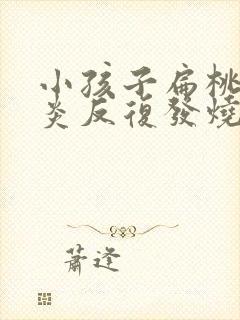 小孩子扁桃
炎反復發燒
蕭逢